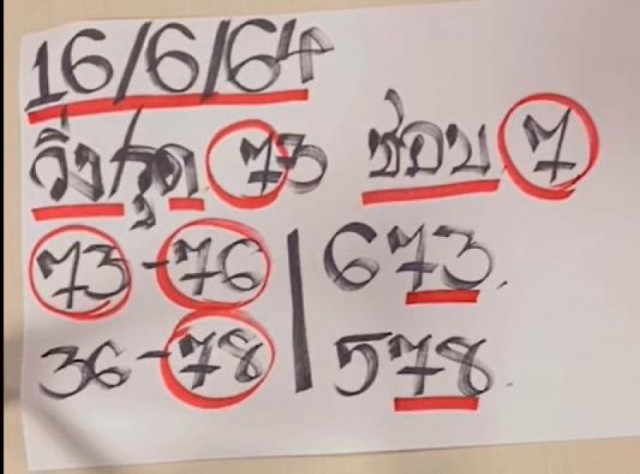 16/6/64
วิ่ง/รูด 73 ชอบ 7
73-76 673
36-78 578